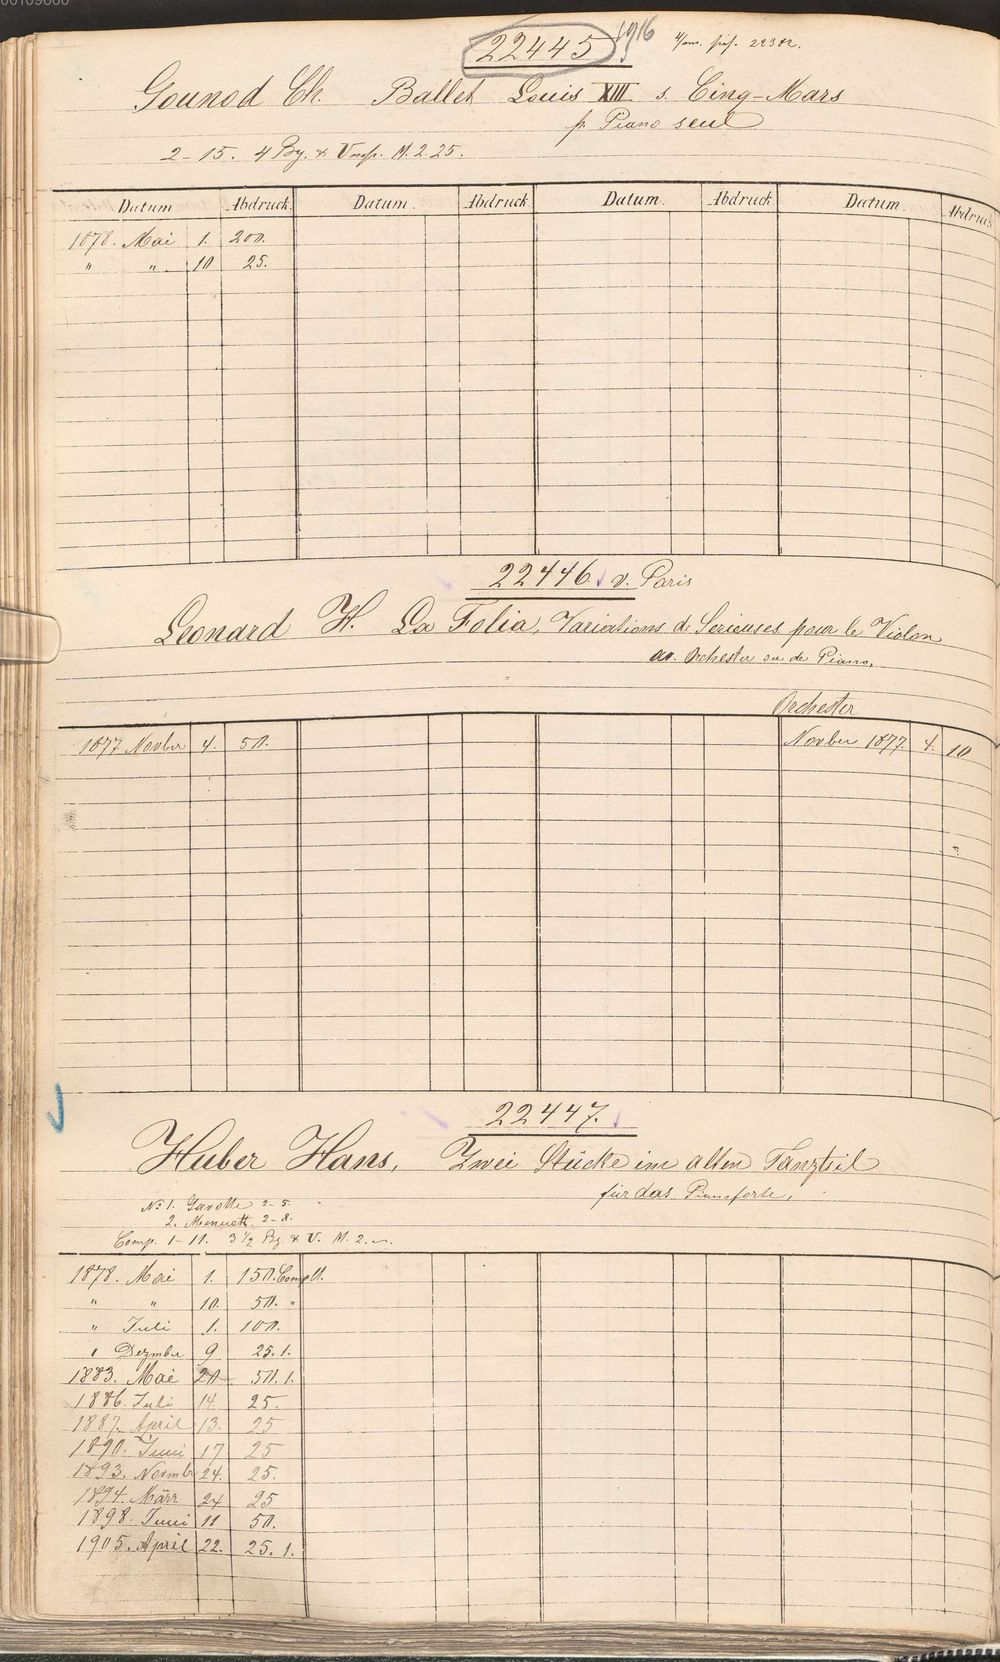 22445 1916
Gounod Ch. Ballet Louis XIII s. Cinq-Mars
p. Piano seul
2-15. 4 Bg. & Umsp. M. 2.25.
Datum Abdruck. Datum. Abdruck Datum. Abdruck Datum. Abdruck
1878. Mai 1. 200.
" " 10 25.
22446. v. Paris
Leonard H. La Folia, Variations de Serieuses pour le Violon
av. Orchester ou de Piano.
Orchester
1877 Novber 4. 50. Novber 1877. 4. 10
22447.
Huber Hans, Zwei Stücke im alten Tanzstil
für das Pianoforte,
No 1. Gavotte 2-5.
2. Menuett. 2-8.
Comp. 1-11. 3 1/2 Bg & U. M. 2.
1878. Mai 1. 150. Complt.
" " 10. 50. "
" Juli 1. 100.
" Dezmber 9 25. 1.
1883. Mai 20 50. 1.
1886. Juli 14. 25.
1887. April 13. 25
1890. Juni 17 25
1893. Novmbr 24. 25.
1894. März 24 25
1898. Juni 11 50.
1905. April 22. 25. 1.